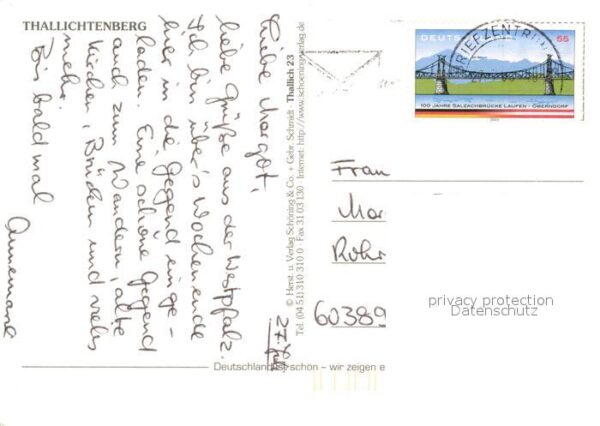 THALLICHTENBERG
27. Juli
Liebe Margot,
liebe Grüße aus der Westpfalz.
Ich bin über's Wochenende
hier in die Gegend einge-
laden. Eine schöne Gegend
auch zum Wandern, alte
Kirchen, Brücken und vieles
mehr.
Bis bald mal
Annemarie
© Herst. u. Verlag Schöning & Co. + Gebr. Schmidt · Thallich 23
Tel. (04 51) 310 310 0 · Fax 31 03 130 · Internet: http://www.schoening-verlag.de
Deutschland ist schön – wir zeigen e
DEUTSCHLAND
55
100 JAHRE SALZACHBRÜCKE LAUFEN - OBERNDORF
BRIEFZENTRUM
Frau
Mar
Rohr
60389
privacy protection
Datenschutz